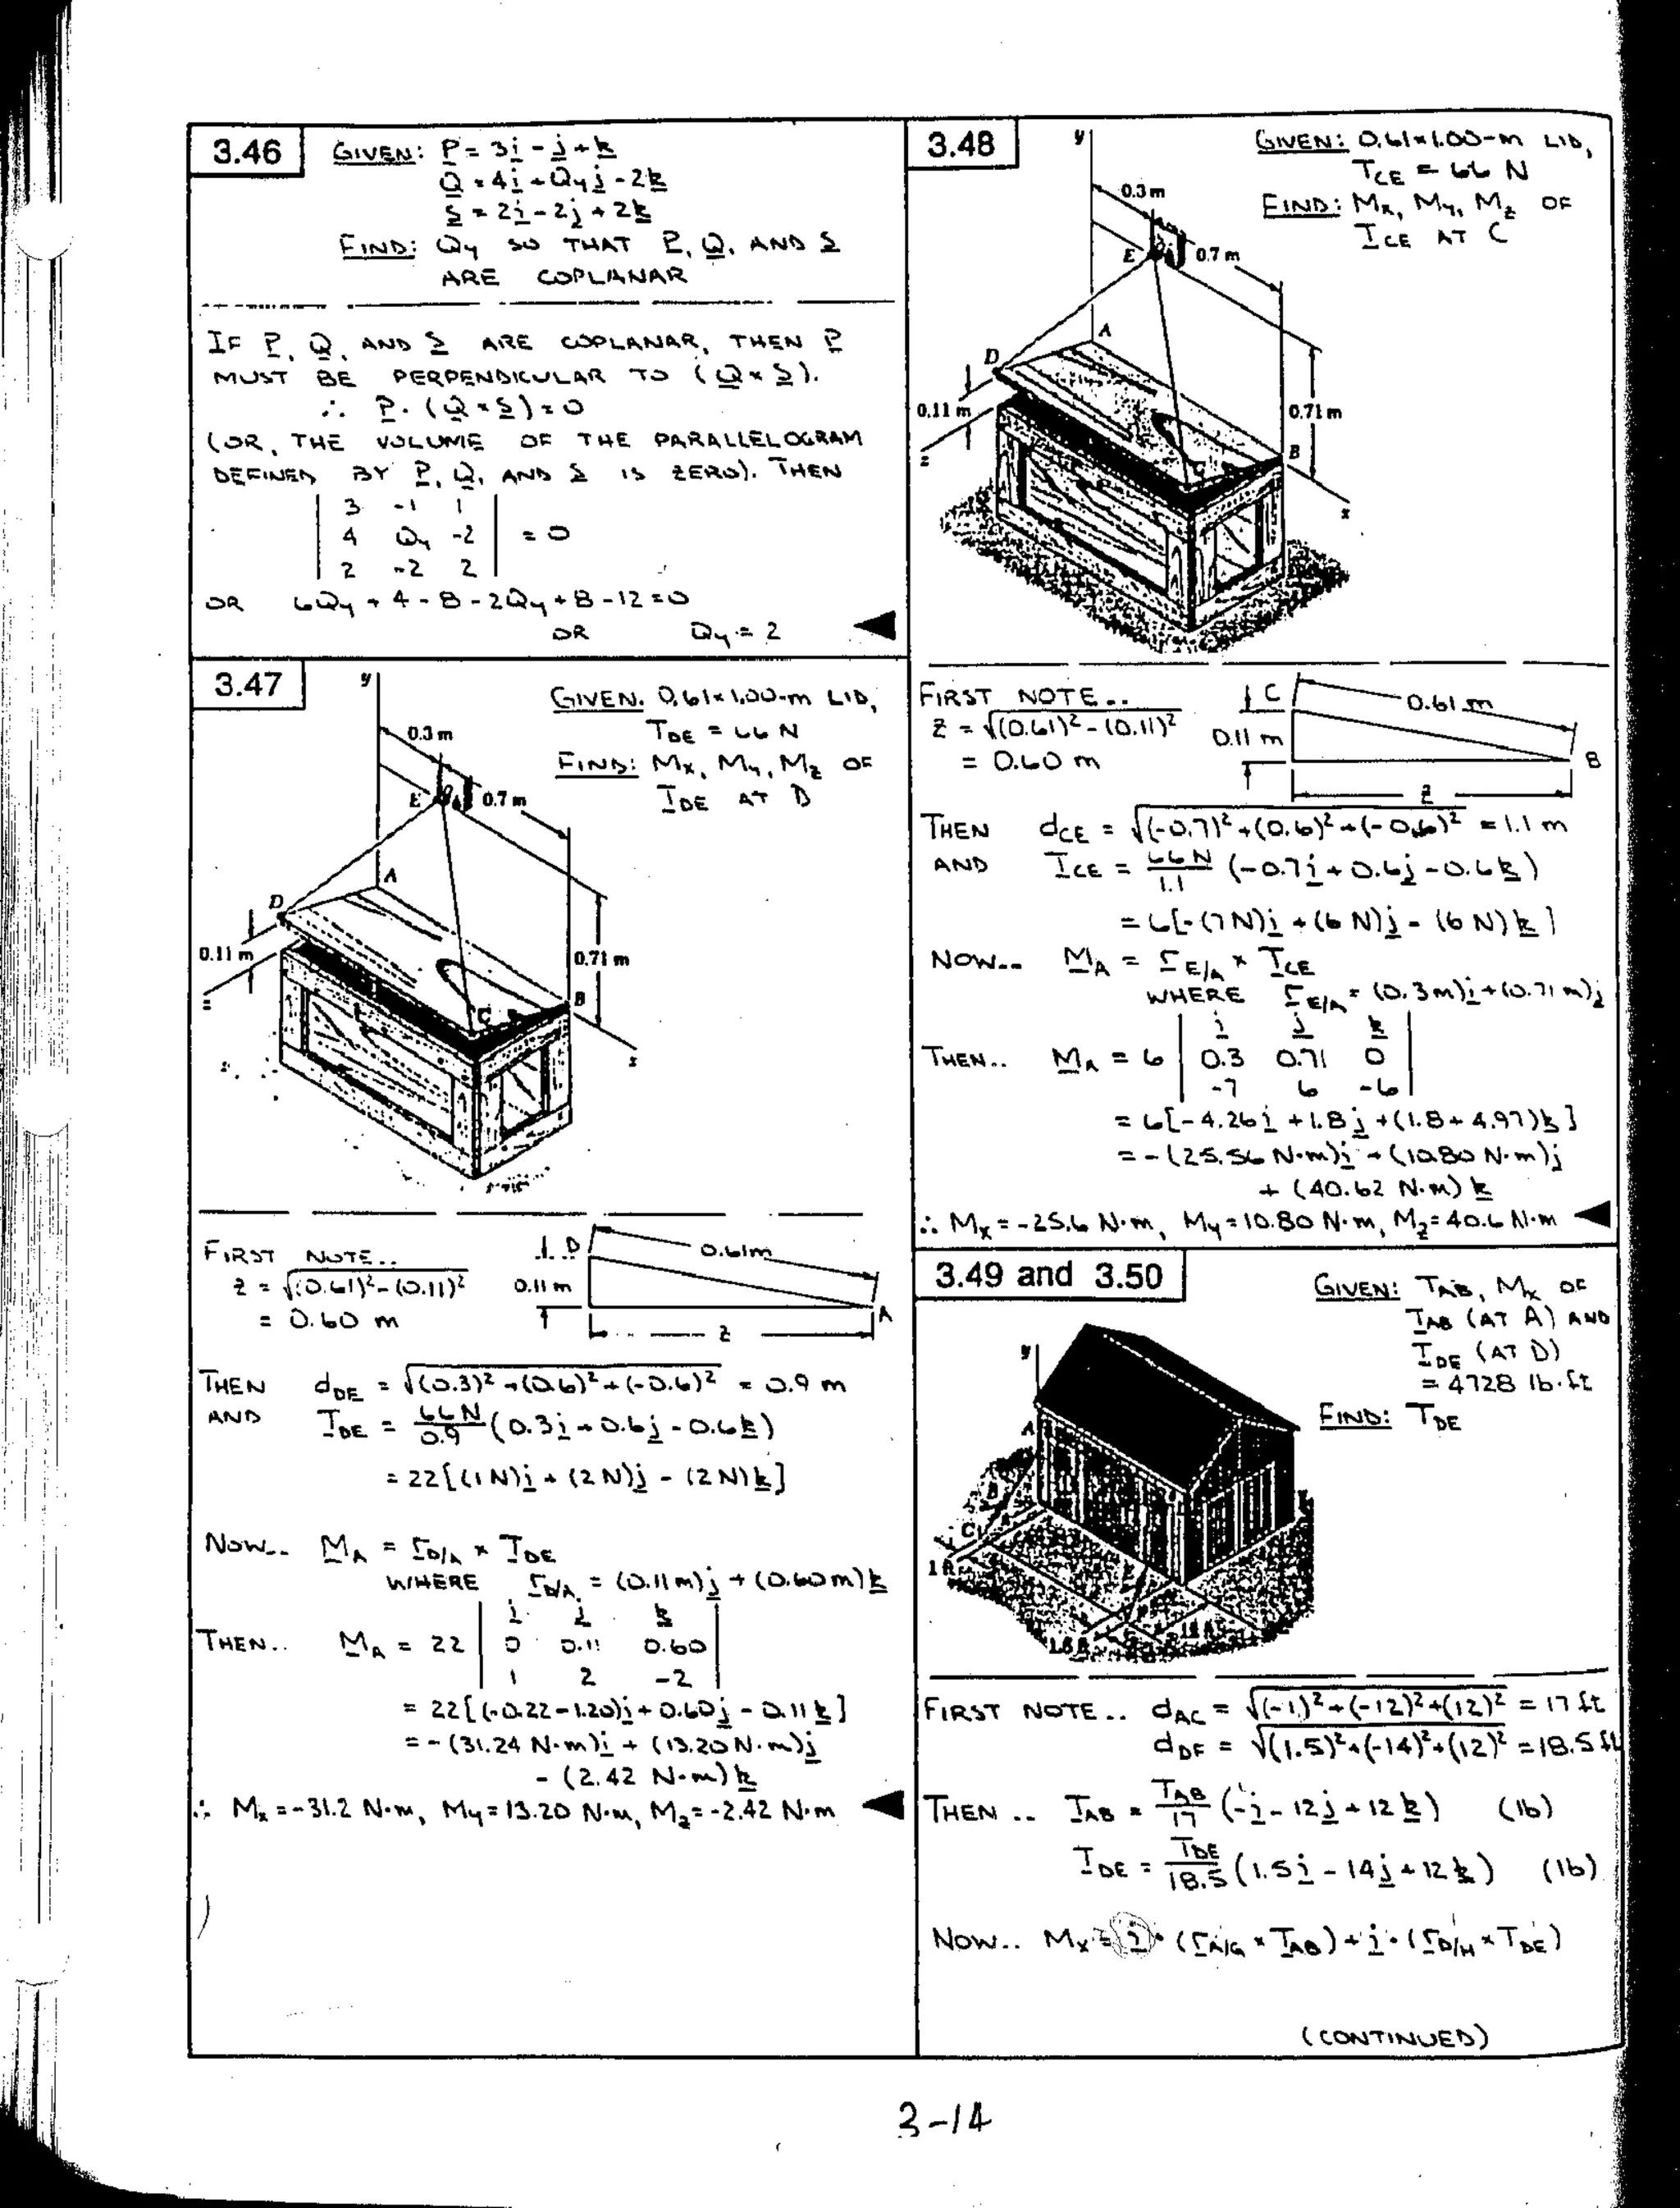 3.46
GIVEN: P = 3i - j + k
Q = 4i + Qyj - 2k
S = 2i - 2j + 2k
FIND: Qy SO THAT P, Q, AND S
ARE COPLANAR
IF P, Q, AND S ARE COPLANAR, THEN P
MUST BE PERPENDICULAR TO (Q × S).
∴ P · (Q × S) = 0
(OR, THE VOLUME OF THE PARALLELOGRAM
DEFINED BY P, Q, AND S IS ZERO). THEN
3 -1 1
4 Qy -2 = 0
2 -2 2
OR 6Qy + 4 - 8 - 2Qy + 8 - 12 = 0
OR Qy = 2
3.47
GIVEN. 0.61×1.00-m LID,
TDE = 66 N
FIND: Mx, My, Mz OF
TDE AT D
y
0.3 m
E
0.7 m
A
D
0.11 m
0.71 m
B
C
z
x
FIRST NOTE...
z = √(0.61)² - (0.11)²
= 0.60 m
D
0.61m
0.11 m
A
z
THEN dDE = √(0.3)² + (0.6)² + (-0.6)² = 0.9 m
AND TDE = 66 N/0.9 (0.3i + 0.6j - 0.6k)
= 22[(1 N)i + (2 N)j - (2 N)k]
NOW.. MA = rD/A × TDE
WHERE rD/A = (0.11 m)j + (0.60 m)k
i j k
THEN.. MA = 22 0 0.11 0.60
1 2 -2
= 22[(-0.22 - 1.20)i + 0.60j - 0.11k]
= -(31.24 N·m)i + (13.20 N·m)j
- (2.42 N·m)k
∴ Mx = -31.2 N·m, My = 13.20 N·m, Mz = -2.42 N·m
3.48
GIVEN: 0.61×1.00-m LID,
TCE = 66 N
FIND: Mx, My, Mz OF
TCE AT C
y
0.3 m
E
0.7 m
A
D
0.11 m
0.71 m
B
z
C
x
FIRST NOTE...
z = √(0.61)² - (0.11)²
= 0.60 m
C
0.61 m
0.11 m
B
z
THEN dCE = √(-0.7)² + (0.6)² + (-0.6)² = 1.1 m
AND TCE = 66 N/1.1 (-0.7i + 0.6j - 0.6k)
= 6[-(7 N)i + (6 N)j - (6 N)k]
NOW.. MA = rE/A × TCE
WHERE rE/A = (0.3 m)i + (0.71 m)j
i j k
THEN.. MA = 6 0.3 0.71 0
-7 6 -6
= 6[-4.26i + 1.8j + (1.8 + 4.97)k]
= -(25.56 N·m)i + (10.80 N·m)j
+ (40.62 N·m)k
∴ Mx = -25.6 N·m, My = 10.80 N·m, Mz = 40.6 N·m
3.49 and 3.50
GIVEN: TAB, Mx OF
TAB (AT A) AND
TDE (AT D)
= 4728 lb·ft
FIND: TDE
y
A
B
C
1 ft
FIRST NOTE.. dAC = √(-1)² + (-12)² + (12)² = 17 ft
dDF = √(1.5)² + (-14)² + (12)² = 18.5 ft
THEN .. TAB = TAB/17 (-i - 12j + 12k) (lb)
TDE = TDE/18.5 (1.5i - 14j + 12k) (lb)
NOW.. Mx = i · (rA/G × TAB) + i · (rD/H × TDE)
(CONTINUED)
3-14